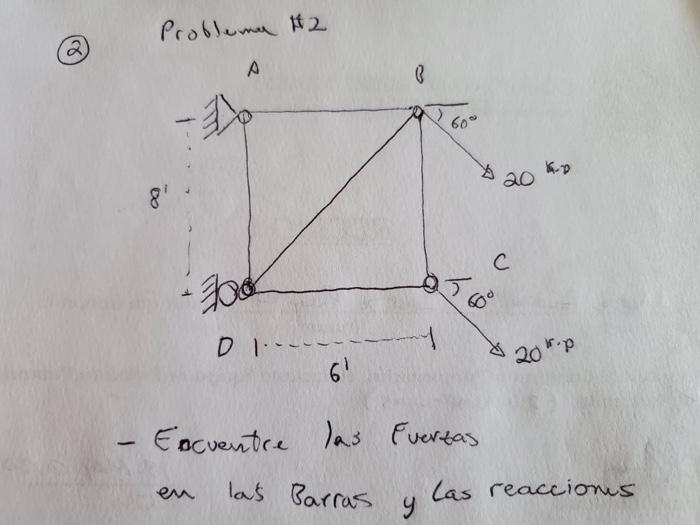 ② Problema #2
A
B
60°
20 K.P
8'
C
60°
20 K.P
D
6'
- Encuentre las Fuerzas
en las Barras y las reacciones